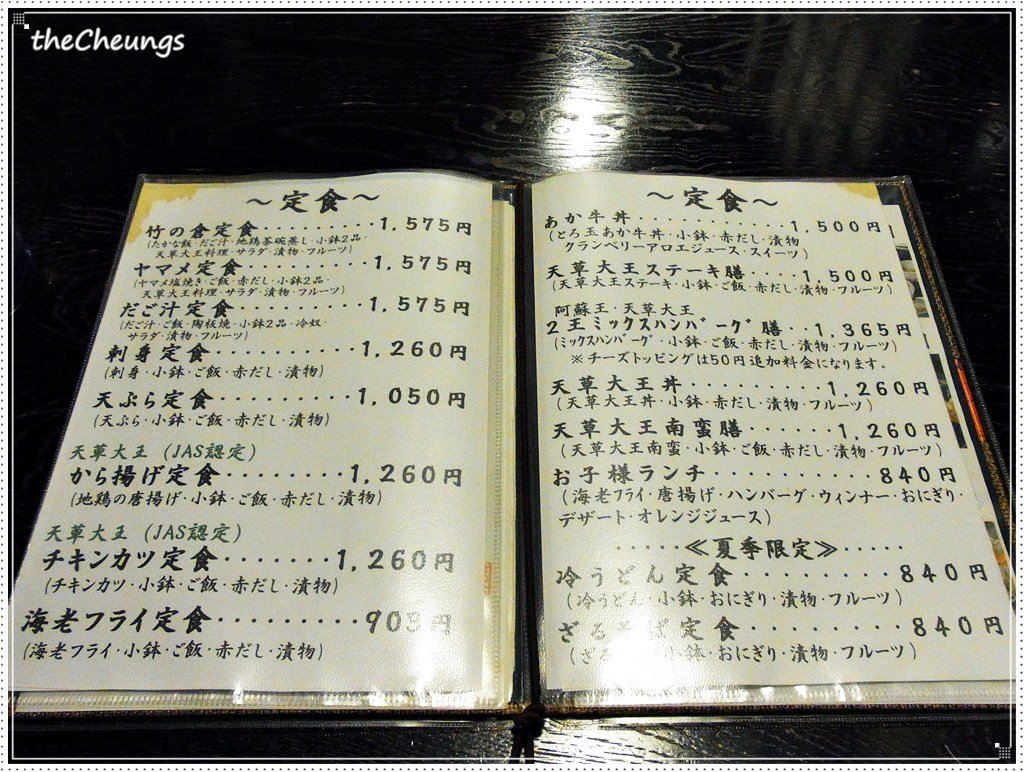 theCheungs
～定食～
竹の倉定食・・・・・・・・・1,575円
(たかな飯・だご汁・地鶏茶碗蒸し・小鉢2品・
天草大王料理・サラダ・漬物・フルーツ)
ヤマメ定食・・・・・・・・・・1,575円
(ヤマメ塩焼き・ご飯・赤だし・小鉢2品
天草大王料理・サラダ・漬物・フルーツ)
だご汁定食・・・・・・・・・・1,575円
(だご汁・ご飯・陶板焼・小鉢2品・冷奴・
サラダ・漬物・フルーツ)
刺身定食・・・・・・・・・・・1,260円
(刺身・小鉢・ご飯・赤だし・漬物)
天ぷら定食・・・・・・・・・・1,050円
(天ぷら・小鉢・ご飯・赤だし・漬物)
天草大王 (JAS認定)
から揚げ定食・・・・・・・・1,260円
(地鶏の唐揚げ・小鉢・ご飯・赤だし・漬物)
天草大王 (JAS認定)
チキンカツ定食・・・・・・・1,260円
(チキンカツ・小鉢・ご飯・赤だし・漬物)
海老フライ定食・・・・・・・・・903円
(海老フライ・小鉢・ご飯・赤だし・漬物)
～定食～
あか牛丼・・・・・・・・・・・・1,500円
(とろ玉あか牛丼・小鉢・赤だし・漬物
クランベリーアロエジュース・スイーツ)
天草大王ステーキ膳・・・・1,500円
(天草大王ステーキ・小鉢・ご飯・赤だし・漬物・フルーツ)
阿蘇王・天草大王
2王ミックスハンバーグ膳・・1,365円
(ミックスハンバーグ・小鉢・ご飯・赤だし・漬物・フルーツ)
※チーズトッピングは50円追加料金になります。
天草大王丼・・・・・・・・・・1,260円
(天草大王丼・小鉢・赤だし・漬物・フルーツ)
天草大王南蛮膳・・・・・・1,260円
(天草大王南蛮・小鉢・ご飯・赤だし・漬物・フルーツ)
お子様ランチ・・・・・・・・・・840円
(海老フライ・唐揚げ・ハンバーグ・ウィンナー・おにぎり・
デザート・オレンジジュース)
・・・・・≪夏季限定≫・・・・・
冷うどん定食・・・・・・・・・・840円
(冷うどん・小鉢・おにぎり・漬物・フルーツ)
ざるそば定食・・・・・・・・・・840円
(ざる 小鉢・おにぎり・漬物・フルーツ)